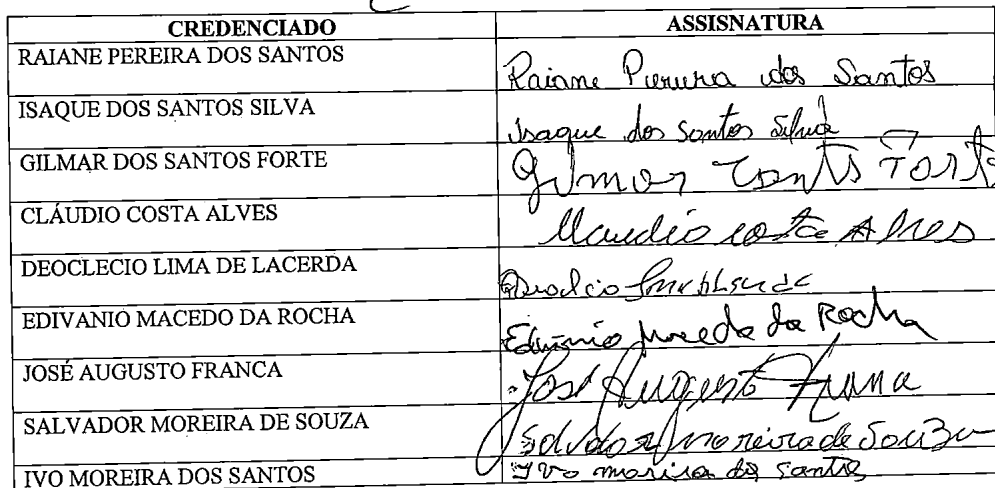 CREDENCIADO ASSISNATURA
RAIANE PEREIRA DOS SANTOS Raiane Pereira dos Santos
ISAQUE DOS SANTOS SILVA Isaque dos Santos Silva
GILMAR DOS SANTOS FORTE Gilmar
CLÁUDIO COSTA ALVES Claudio costa Alves
DEOCLECIO LIMA DE LACERDA
EDIVANIO MACEDO DA ROCHA Edivanio Macedo da Rocha
JOSÉ AUGUSTO FRANCA José Augusto
SALVADOR MOREIRA DE SOUZA Salvador moreira de Souza
IVO MOREIRA DOS SANTOS Ivo moreira dos santos